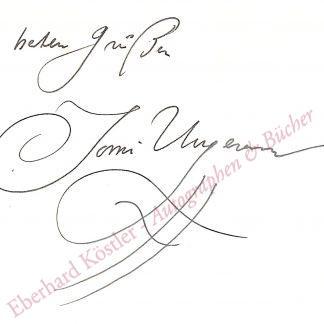 besten Grüßen
Tomi Ungerer
Eberhard Köstler - Autographen & Bücher